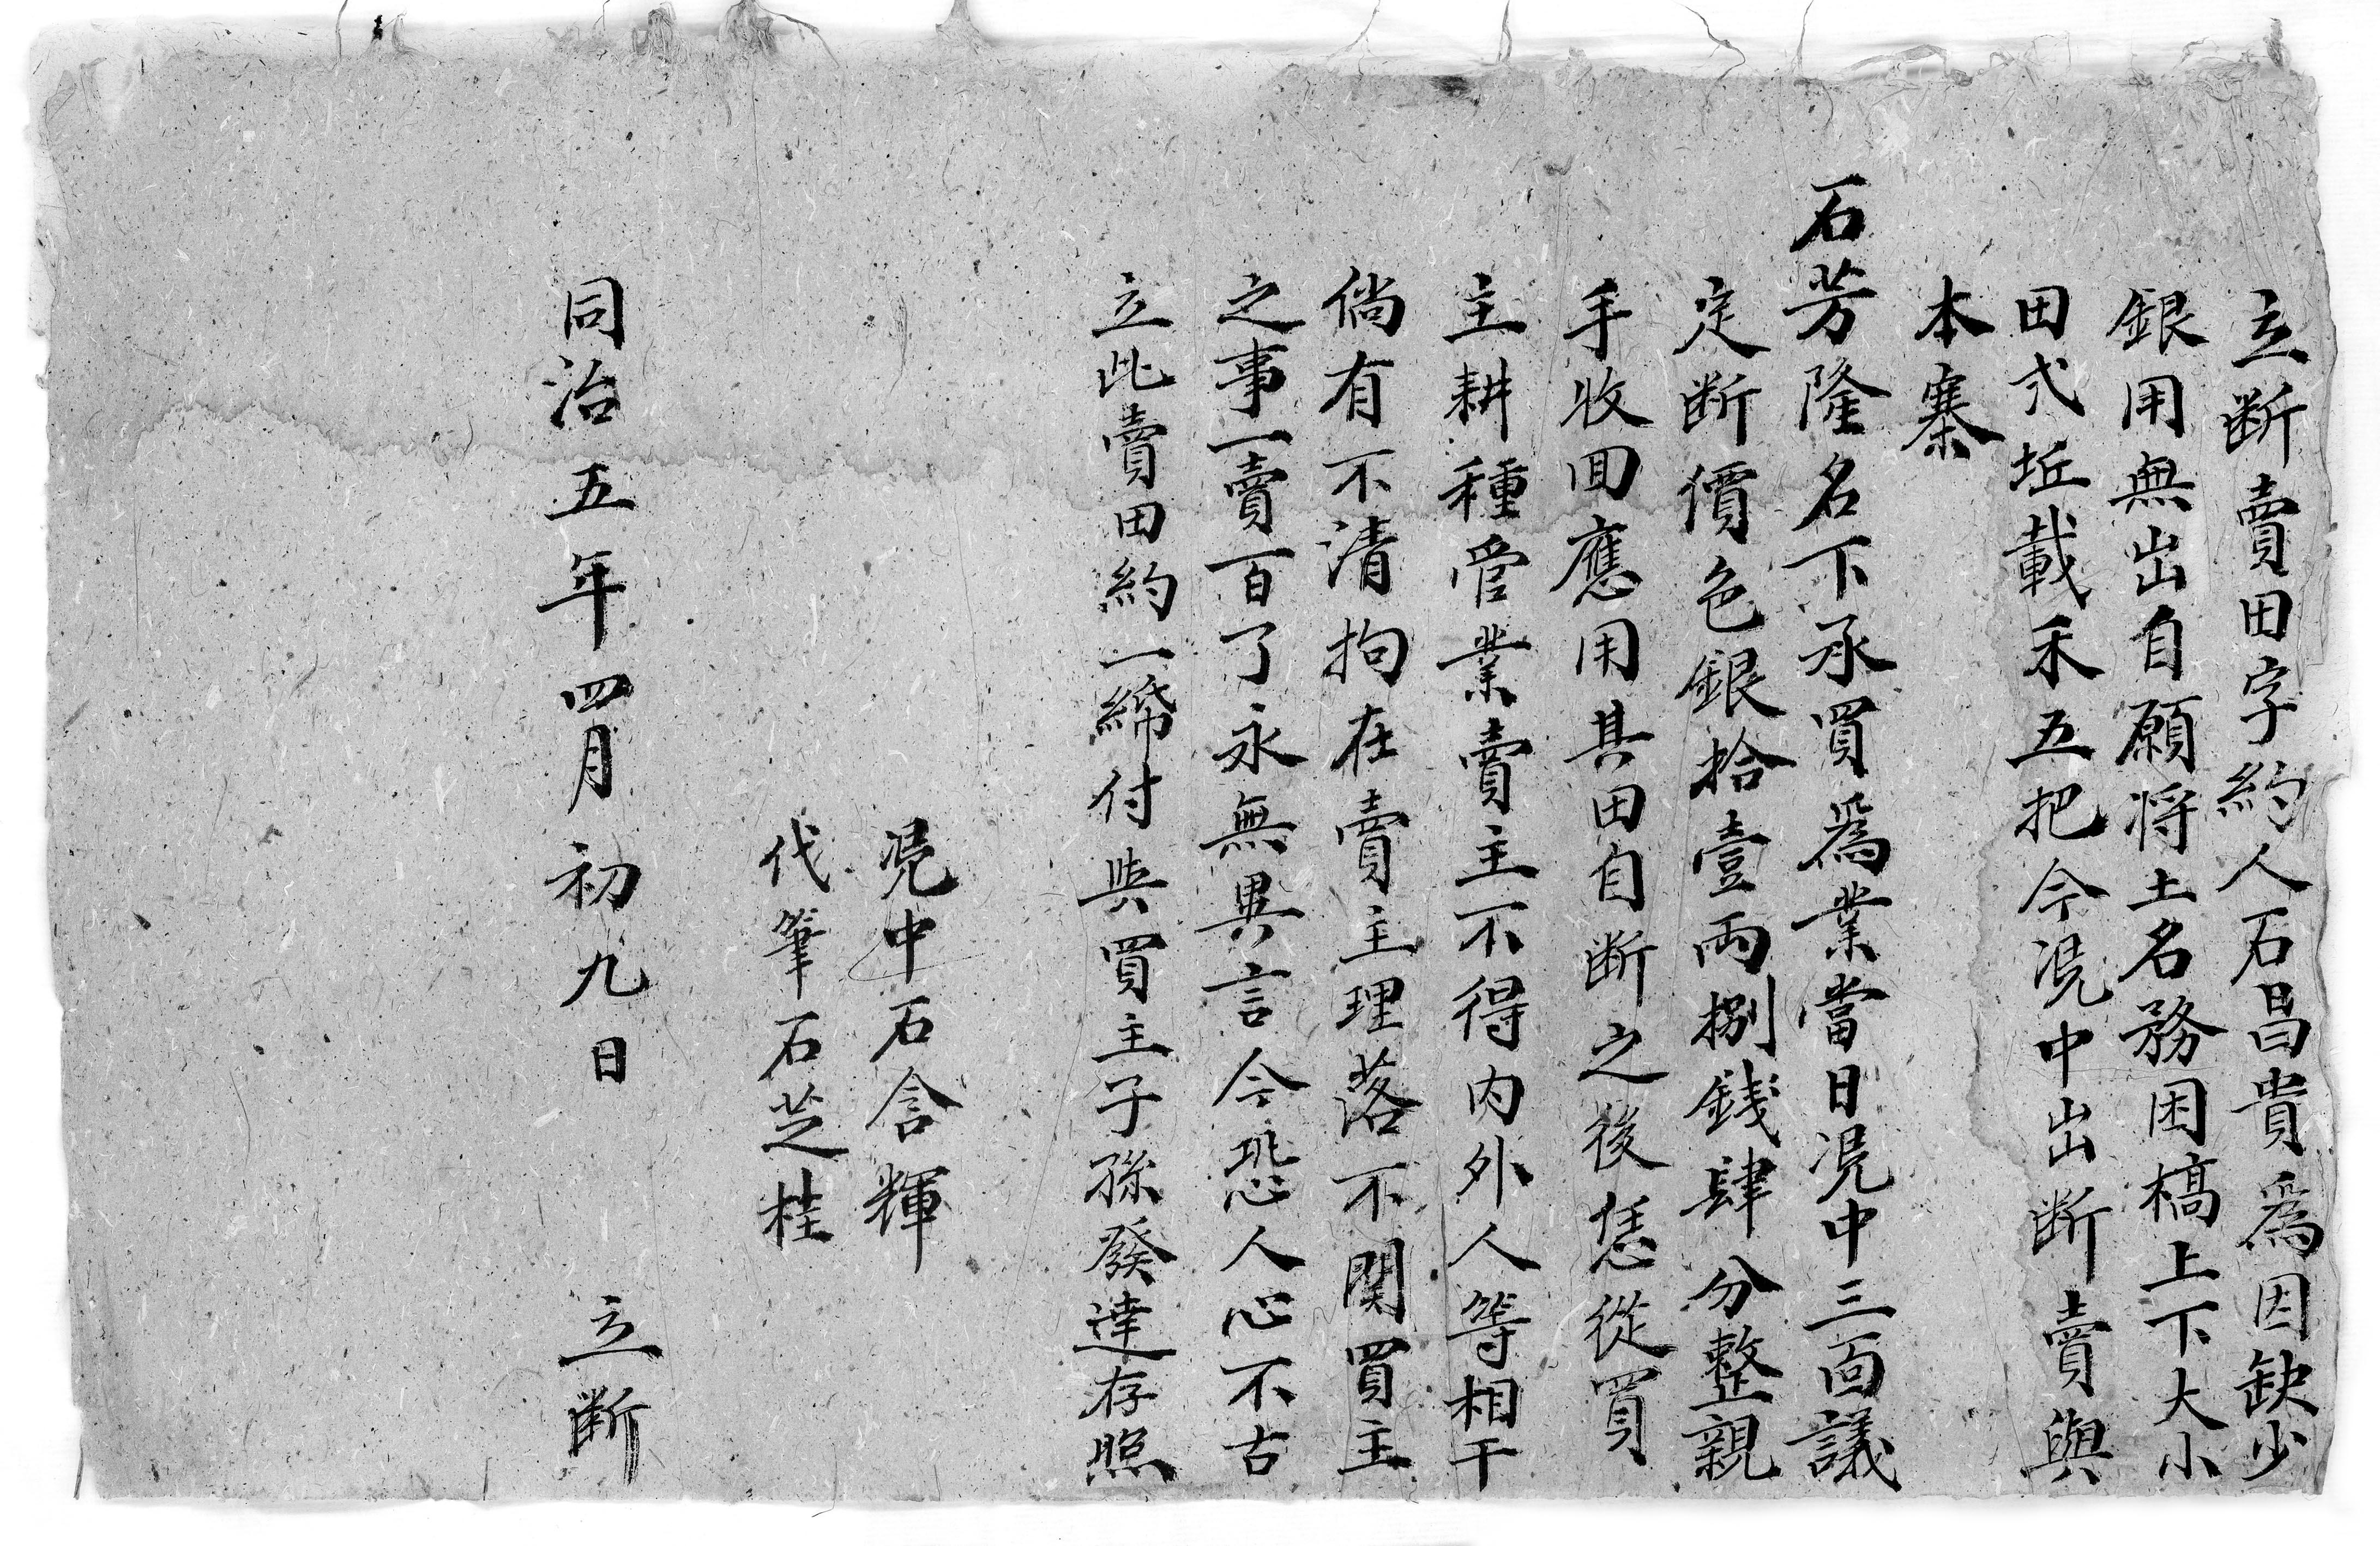 立断賣田字約人石昌貴爲因缺少
銀用無出自願将土名務困槁上下大小
田弍坵載禾五把今凴中出断賣與
本寨
石芳隆名下承買爲業當日凴中三面議
定断價色銀拾壹両捌銭肆分整親
手收回應用其田自断之後恁從買
主耕種管業賣主不得内外人等相干
倘有不清拘在賣主理落不関買主
之事一賣百了永無異言今恐人心不古
立此賣田約一紙付與買主子孫發達存照
凴中石含輝
代筆石芝桂
同治五年四月初九日 立断